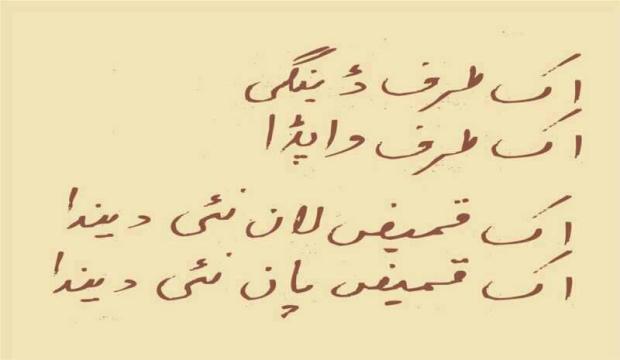 اک طرف ڈینگی
اک طرف واپڈا
اک قمیض لان نئی دیندا
اک قمیض پان نئی دیندا